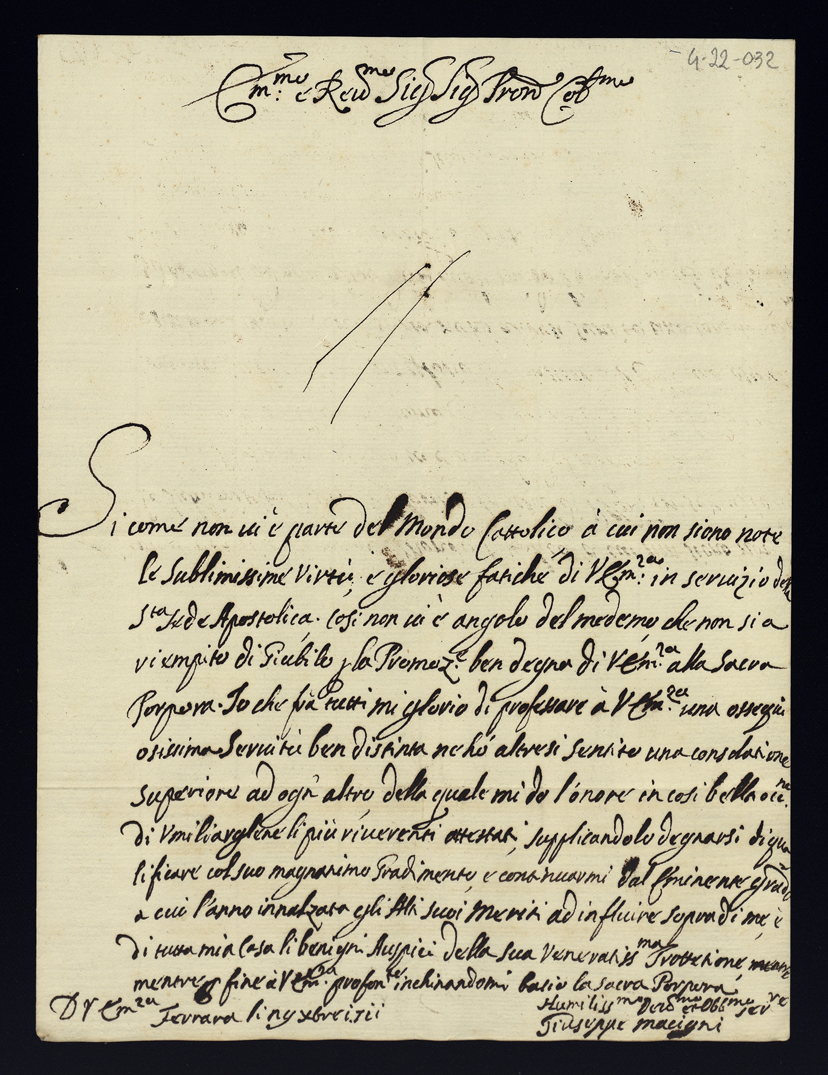 4-22-032
Em:mo e Reu.mo Sig.r Sig.r Pron Col.mo
Si come non ui è parte del Mondo Cattolico à cui non siono note
le sublimissime virtù, e gloriose fatiche di V Em:za in servizio della
S.ta Sede Apostolica. Cosi non ui è angolo del medemo che non sia
riempito di Giubilo p la Promoz.e ben degna di V Em:za alla Sacra
Porpora. Io che frà tutti mi glorio di professare à V Em:za una ossequi
osissima Seruitù ben distinta ne hó altresi sentito una consolatione
superiore ad ogn' altro della quale mi do l'onore in cosi bella occ.ne
di Vmiliarglene li più riuerenti attestati, supplicandolo degnarsi di qua
lificare col suo magnanimo Gradimento, e continuarmi dal Eminente grado
a cui l'anno innalzata gli Alti suoi Meriti ad influire sopra di me, è
di tutta mia Casa li benigni Auspici della sua Veneratiss.ma Prottetione,
mentre p fine à V Em:za profon.te inchinandomi bacio la sacra Porpora
D V Em.za Ferrara li 1713
Humiliss.mo Deuo.mo et Obb.mo Ser.re
Giuseppe Macigni